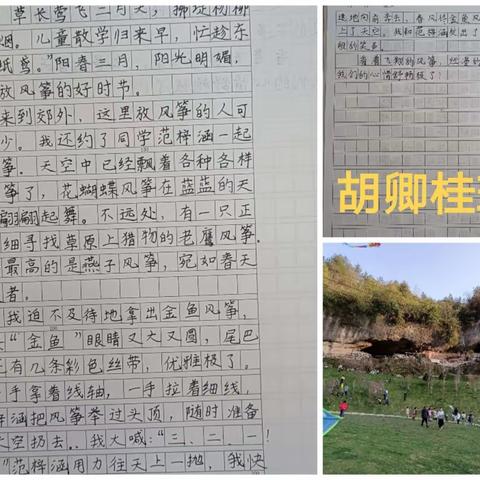 草长莺飞二月天，拂堤杨柳
烟。儿童散学归来早，忙趁东
纸鸢。”阳春三月，阳光明媚，
放风筝的好时节。
来到郊外，这里放风筝的人可
少。我还约了同学范梓涵一起
筝。天空中已经飘着各种各样
筝了，花蝴蝶风筝在蓝蓝的天
翩翩起舞。不远处，有一只正
细寻找草原上猎物的老鹰风筝.
最高的是燕子风筝，宛如春天
者。
我迫不及待地拿出金鱼风筝，
“金鱼”眼睛又大又圆，尾巴
有几条彩色丝带，优雅极了。
手拿着线轴，一手拉着细线，
梓涵把风筝举过头顶，随时准备
空扔去。我大喊：“三、二、一！
”范梓涵用力往天上一抛，我快
速地向前奔去，春风将金鱼风
上了天空。我和范梓涵放出了
眼的笑容。
看着飞翔的风筝，
我们的心情舒畅极了！
胡卿桂